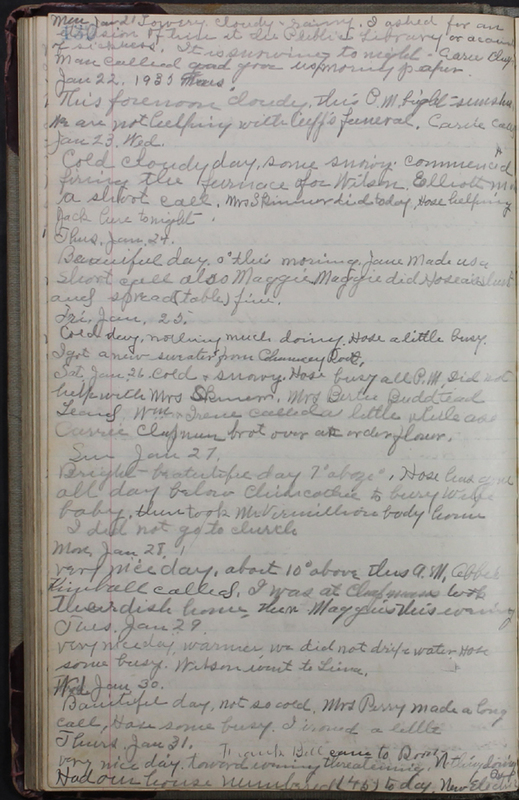 Mon. Jan 21 Lowery. Cloudy & rainy. I asked for an
of time at the Public Library on account
of sickness. It is snowing to night - Carrie Chap
man called
Jan 22, 1935
This forenoon cloudy, this P.M. bright sunshine
We are not helping with funeral. Carrie
Jan 23, Wed.
Cold cloudy day, some snowy. commenced
firing the furnace for Wilson. Elliott
a short call. Mrs Skinner did today, Hose helping
back here tonight.
Thus. Jan. 24.
Beautiful day. 0° this morning. Jane made us a
short call also Maggie, Maggie did Hose's
and spread (table) fine.
Fri. Jan. 25.
Cold day, nothing much doing. Hose a little busy.
I got a new sweater from Chauncey Root.
Sat. Jan. 26. Cold & snowy. Hose busy all P.M. Did not
help with Mrs Skinner. Mrs Budd
Wm & Irene called a little while and
Carrie Chapman brot over an order flour.
Sun Jan 27.
Bright beautiful day 7° above". Hose has gone
all day below to bury
baby, then took Mr Vermillion body home
I did not go to church
Mon. Jan. 28.
very nice day. about 10° above this A.M. Abbie
Kimball called. I was at Chapmans took
their dish home, then Maggies this evening
Tues. Jan 29
very nice day, warmer, we did not drip water Hose
some busy. Watson went to Lima.
Wed Jan 30.
Beautiful day, not so cold. Mrs Perry made a long
call, Hose some busy. I ironed a little
Thurs. Jan 31. Frank Bell came to Root
very nice day, toward evening threatening. Nothing doing
Had our house numbered (45) to day. New Electric